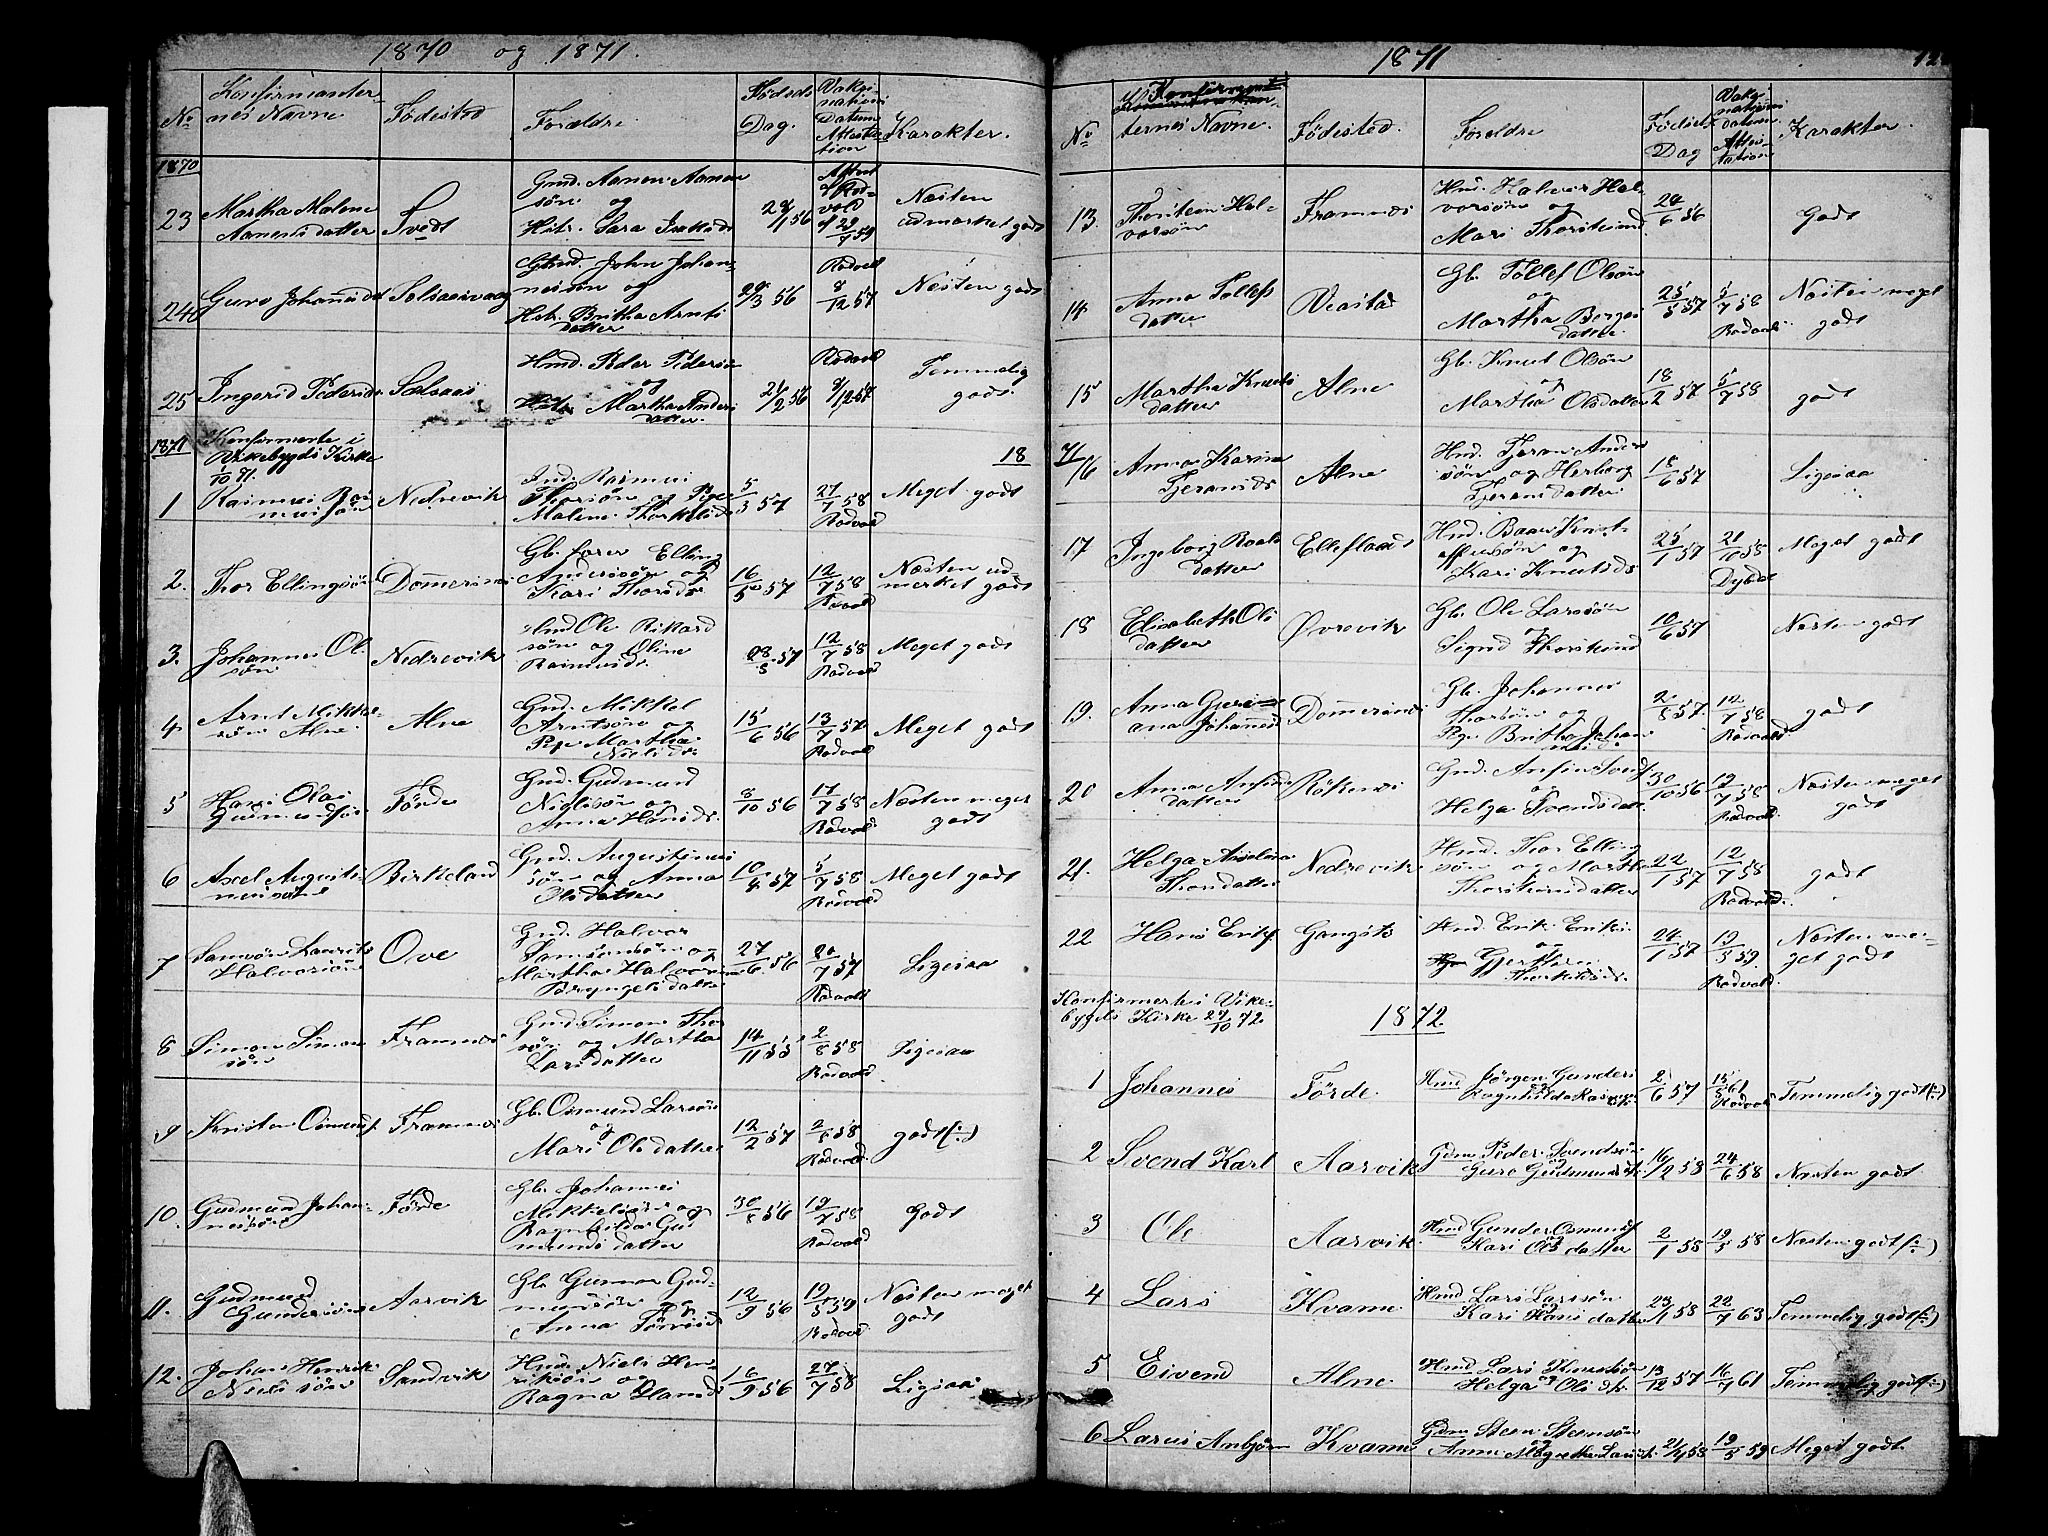 1870 og 1871.
No Konfirmanternes Navne Fødested Forældre Føds Dag. Vakcinations Datum Attestation Karakter.
1870
23 Martha Malene Aanensdatter Svedt Gmd. Aanen Aanensön og Hstr. Sara 28/1 56 Attest af Rodvold Næsten udmærket godt
24 Guro Johannesd Gmd. John Johannesön og Hstr. Britha Arntsdatter /3 56 Rodvold 8/12 57 Næsten godt
25 Ingerid Pedersd Hmd. Peder Pedersön og Martha Andersdatter 26/2 56 Rodvold 8/12 57 Temmelig godt.
1871 Konfirmerte i Vikebygds Kirke 1/10 71. 18
1 Rasmus Rasmussön Nedrevik Rasmus Thorsön og Pige Malene Thorkilds 5/3 57 27/7 58 Rodvold Meget godt
2. Thor Ellingsön Dommersnes Gb. Elling Andersön og Kari Thorsdr 16/5 57 12/7 58 Rodvold Næsten udmerket godt
3. Johannes Olsön Nedrevik Hmd Ole Rikardsön og Oline Rasmusd. 28/5 57 12/7 58 Rodvold Meget godt
4 Arnt Mikkelsön Alne. Alne Gmd. Mikkel Arntsön og Pige Martha Nielsdr 15/6 56 13/7 57 Rodvold Meget godt
5 Hans Olai Gudmundsön Förde Gmd. Gudmund Nielsön og Anna Hansdr. 8/10 56 17/7 58 Rodvold Næsten meget godt
6 Axel Augustinussön Birkeland Gmd. Augustinus sön og Anna Olsdatter 10/8 57 5/7 58 Rodvold Meget godt
7 Samsön Laurits Halvorsön Ove Gmd. Halvor Samsonsön og Martha Halvorine Bryngelsdatter 27/6 56 20/7 57 Rodvold Ligesaa
8 Simon Simonsön Framnes Gmd. Simon Thorsön og Martha Larsdatter 14/11 55 2/8 58 Rodvold Ligesaa
9 Kristen Osmunds Framnes Gb. Osmund Larsön og Mari Olsdatter 12/2 57 2/8 58 Rodvold godt (÷)
10. Gudmund Johannessön Förde Gb. Johannes Mikkelsön og Ragnhilda Gudmundsdatter 30/8 56 19/7 58 Rodvold Godt
11. Gudmund Gundersön Aarvik Gb. Gunnar Gudmundsön og Anna Tørrisd 12/9 56 19/5 59 Rodvold Næsten meget godt
12. Johan Henrik Nielssön Sandvik Hmd. Niels Henriksön og Ragna Elamsd 16/9 56 27/7 58 Ligesaa
1871
No Konfirmanternes Navne. Fødested. Foreldre Fødsels Dag Vakcinations datum Attestation Karakter.
13. Thorstein Halvorsön Framnes Hmd. Halvor Halvorsön og Mari Thorsteinsd 28/6 56 Godt
14 Anna Tollefsdatter Veastad Gb. Tollef Olsön og Martha Borgesdatter. 25/5 57 5/7 58 Rodvold. Næsten meget godt
15 Martha Knutsdatter Alne Gb. Knut Olsön og Martha Olsdatter 18/2 57 5/7 58 godt
71 16 Anna Karina Tjeransds Alne Hmd. Tjeran Andersön og Herborg Tjeransdatter 18/6 57 Ligesaa
17 Ingeborg Roaldsdatter Elleflaadt Hmd. Baar Knutsön og Kari Knutsds 25/1 57 21/10 58 Dybdal Meget godt
18 Elisabeth Olsdatter Øvrevik Gb. Ole Larssön og Sigrid Thorsteinsd 10/6 57 Næsten godt
19. Anna Guriana Johannesd Dommersnes Gb. Johannes Thorsön og Pige Britha Johannesd. 2/8 57. 12/7 58 Rodvold godt
20 Anna Anfinsdatter Rökenes Gmd. Anfin Svends og Helga Svendsdat 30/10 56 12/7 58 Rodvold. Næsten meget godt
21. Helga Thorsdatter Nedrevik Hmd. Thor Ellingsön og Martha Thorsteinsdatter 22/1 57 12/7 58 Rodvold. godt
22 Hans Eriks Gangstö Hmd. Erik Eriks og Gjerthru Thorkildsds 24/1 57 19/5 59 Rodvold. Næsten meget godt
Konfirmerte i Vikebygds Kirke 27/10 72. 1872.
1 Johannes Förde. Hmd Jørgen Gunders og Ragnhilda Rasmus 2/6 57 15/8 61 Rodvold Temmelig godt (÷)
2 Svend Karl Aarvik Gdm Peder Svendsön og Guro Gudmundsdt. 16/2 58 24/6 58 Næsten godt
3 Ole Aarvik Hmd Gunder Osmunds og Kari Olsdatter 2/1 58 19/5 58 Næsten godt (÷)
4 Lars Kvamn Hmd Lars Larssön og Kari Hansdatter 23/1 58 22/7 63 Temmelig godt (÷)
5 Eivend Alne Hmd Lars Knutsön og Helga Olsdt. 13/12 57 16/7 61 Temmelig godt (÷)
6 Larus Anbjørn Kvamn Gdm Steen Steensön og Anna Magrethe Larsdt. 2/4 58 19/5 59 Meget godt.